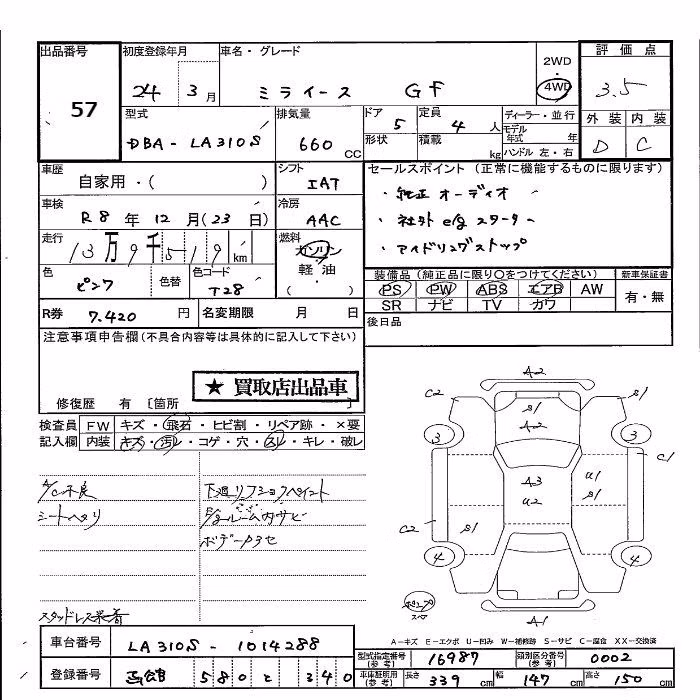 出品番号 初度登録年月 車名・グレード 2WD 評価点
57 24 3月 ミライース GF 4WD 3.5
型式 排気量 ドア 定員 ディーラー・並行 外装 内装
DBA-LA310S 660CC 5 4人 モデル年式 年 D C
形状 積載 kg ハンドル 左・右
車歴 シフト セールスポイント(正常に機能するものに限ります)
自家用・( ) IAT ・純正オーディオ
車検 冷房 ・社外e/gスターター
R8年12月(23日) AAC ・アイドリングストップ
走行 燃料
13万9千519km ガソリン
色 色替 色コード 軽油
ピンク T28 ( ・ )
装備品(純正品に限り○をつけてください) 新車保証書
PS PW ABS エアB AW 有・無
SR ナビ TV カワ
R券 7,420円 名変期限 月 日 後日品
注意事項申告欄(不具合内容等は具体的に記入して下さい)
★買取店出品車
修復歴 有 〔箇所 〕
検査員 FW キズ・飛石・ヒビ割・リペア跡・×要
記入欄 内装 キズ・汚レ・コゲ・穴・スレ・キレ・破レ
A/C不良 下廻リフショクペイント
シートヘタリ E/gルーム内サビ
ボデー口3セ
スタッドレス装着
A2
C2 S1 S1
3 A2 3
C1
A3 U1
U2 S1
C2 S1
4 4
A1
スペア
A-キズ E-エクボ U-凹み W-補修跡 S-サビ C-腐食 XX-交換済
車台番号 LA310S-1014288
型式指定番号(参考) 16987 類別区分番号(参考) 0002
登録番号 580 340
車庫証明用(参考) 長さ 339cm 幅 147cm 高さ 150cm